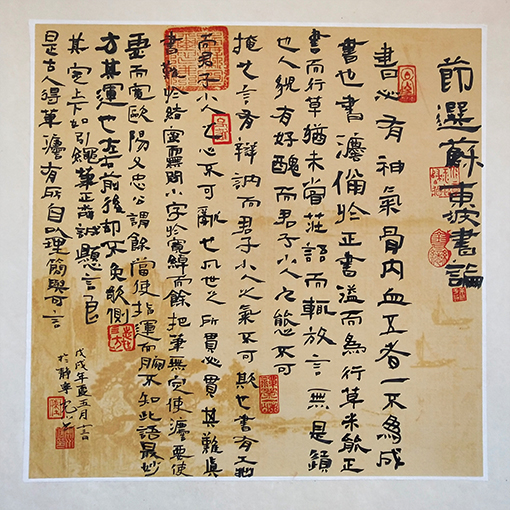 節選蘇東坡書論
書必有神氣骨肉血五者一不為成
書也書灋備於正書溢而為行草未能正
書而行草猶未嘗莊語而輒放言無是蹟
也人貌有好醜而君子小人之態不可
掩也言有辯訥而君子小人之氣不可欺也書有工拙
而君子小人之心不可亂也凡世之所貴必貴其難真
書難於結密無間小字於寬綽而餘把筆無定使灋要使
虛而寬歐陽文忠公謂餘當使指運而腕不知此語最妙
方其運也左右前後却不免欹側
其定上下如引繩筆正誠懸言良
是古人得筆灋有所自理簡與可言
戊戌年夏五月十二日
於靜寧